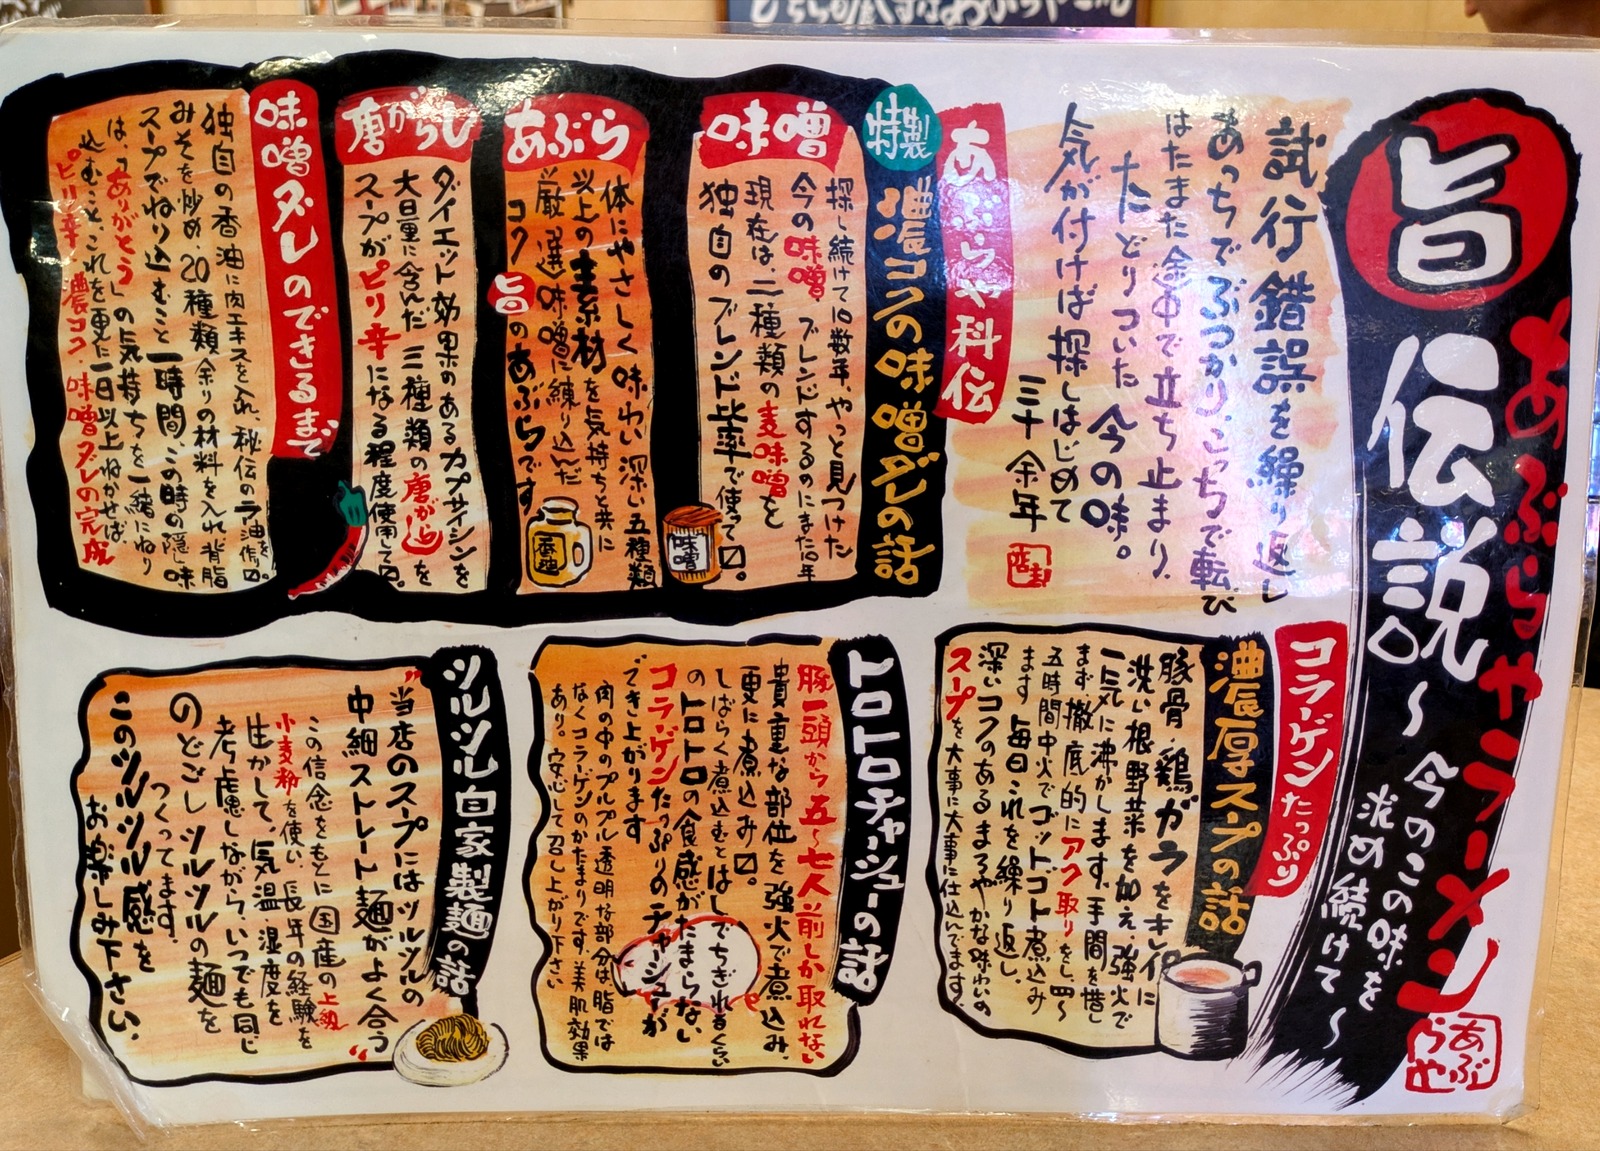 あぶらやラーメン
旨
伝説
～今のこの味を
求め続けて～
あぶらや
試行錯誤を繰り返し
あっちでぶつかり、こっちで転び
はたまた途中で立ち止まり、
たどりついた今の味。
人気が付けば探しはじめて
三十余年
店主
あぶらや科伝
特製
濃コクの味噌ダレの話
味噌
探し続けて10数年、やっと見つけた
今の味噌 ブレンドするのにまた10年
現在は、二種類の麦味噌を
独自のブレンド比率で使って〼。
味噌
あぶら
体にやさしく味わい深い五種類
以上の素材を気持ちと共に
厳選味噌に練り込んだ
コク旨のあぶらです
香油
唐がらし
ダイエット効果のあるカプサイシンを
大量に含んだ三種類の唐がらしを
スープがピリ辛になる程度使用して〼。
味噌ダレのできるまで
独自の香油に肉エキスを入れ、秘伝のラ油を作り〼。
みそを炒め、20種類余りの材料を入れ背脂
スープでねり込むこと一時間、この時の隠し味
は、「ありがとう」の気持ちを一緒にねり
込むこと、これを更に一日以上ねかせば
ピリ辛 濃コク 味噌ダレの完成
コラーゲンたっぷり
濃厚スープの話
豚骨・鶏ガラをキレイに
洗い根野菜を加え強火で
一気に沸かします。手間を惜し
まず徹底的にアク取りをし、四～
五時間中火でゴットゴト煮込み
ます 毎日これを繰り返し、
深いコクのあるまろやかな味わいの
スープを大事に大事に仕込んでます。
トロトロチャーシューの話
豚一頭から五～七人前しか取れない
貴重な部位を強火で煮込み、
更に煮込み〼。
しばらく煮込むとはしでちぎれるくらい
のトロトロの食感がたまらない
コラーゲンたっぷりのチャーシューが
でき上がります
肉の中のプルプル透明な部分は、脂では
なくコラーゲンのかたまりです。美肌効果
あり。安心して召し上がり下さい
ツルツル自家製麺の話
"当店のスープにはツルツルの
中細ストレート麺がよく合う"
この信念をもとに国産の上級
小麦粉を使い、長年の経験を
生かして、気温、湿度を
考慮しながら、いつでも同じ
のどごしツルツルの麺を
つくってます。
このツルツル感を
お楽しみ下さい。